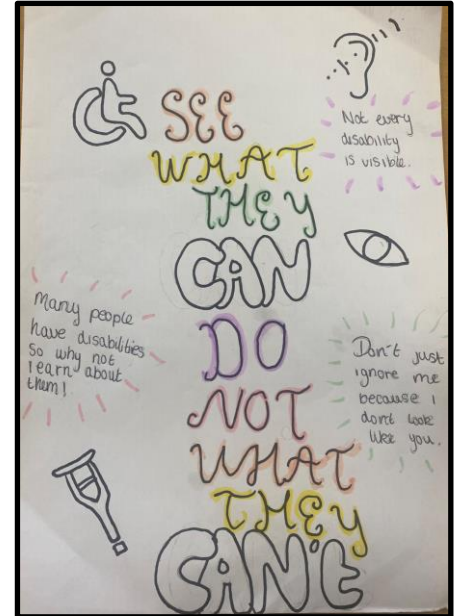 SEE
WHAT
THEY
CAN
DO
NOT
WHAT
THEY
CAN't
Not every
disability
is visible.
Many people
have disabilities
so why not
learn about
them!
Don't just
ignore me
because I
dont look
like you.